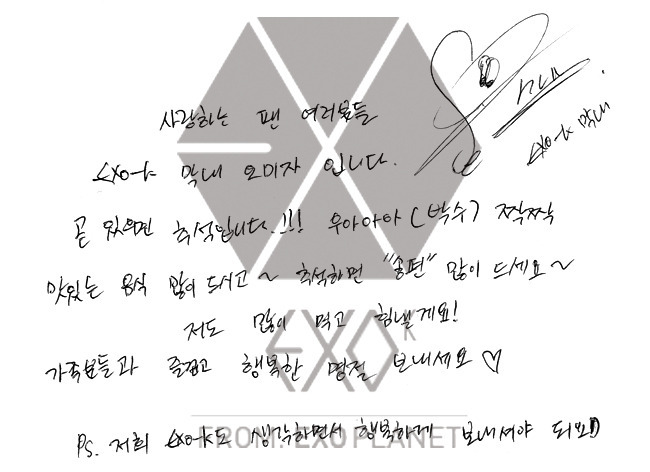 사랑하는 팬 여러분들
EXO-K 막내 오미자 입니다.
EXO-K 막내
곧 있으면 추석입니다.!!! 우아아아 (박수) 짝짝
맛있는 음식 많이 드시고~ 추석하면 "송편" 많이 드세요~
저도 많이 먹고 힘낼게요!
EXO K
가족분들과 즐겁고 행복한 명절 보내세요♡
FROM. EXOPLANET
Ps. 저희 EXO-K도 생각하면서 행복하게 보내셔야 되요!)